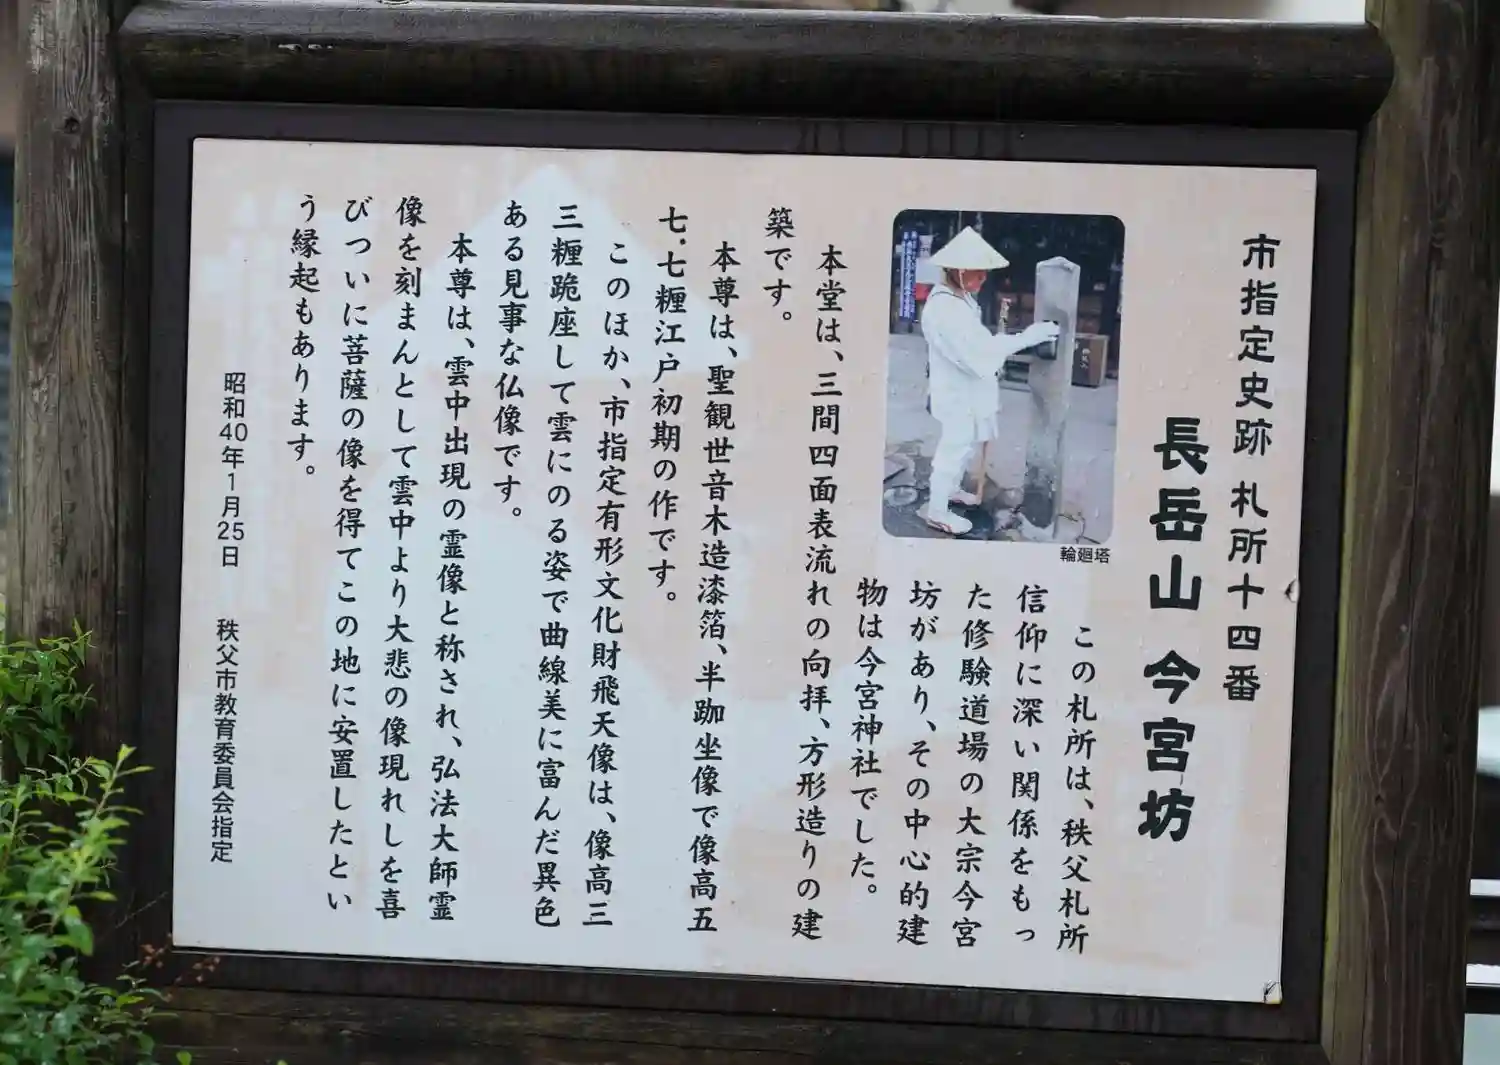 市指定史跡 札所十四番
長岳山 今宮坊
輪廻塔
この札所は、秩父札所
信仰に深い関係をもっ
た修験道場の大宗今宮
坊があり、その中心的建
物は今宮神社でした。
本堂は、三間四面表流れの向拝、方形造りの建
築です。
本尊は、聖観世音木造漆箔、半跏坐像で像高五
七.七糎江戸初期の作です。
このほか、市指定有形文化財飛天像は、像高三
三糎跪座して雲にのる姿で曲線美に富んだ異色
ある見事な仏像です。
本尊は、雲中出現の霊像と称され、弘法大師霊
像を刻まんとして雲中より大悲の像現れしを喜
びついに菩薩の像を得てこの地に安置したとい
う縁起もあります。
昭和40年1月25日 秩父市教育委員会指定